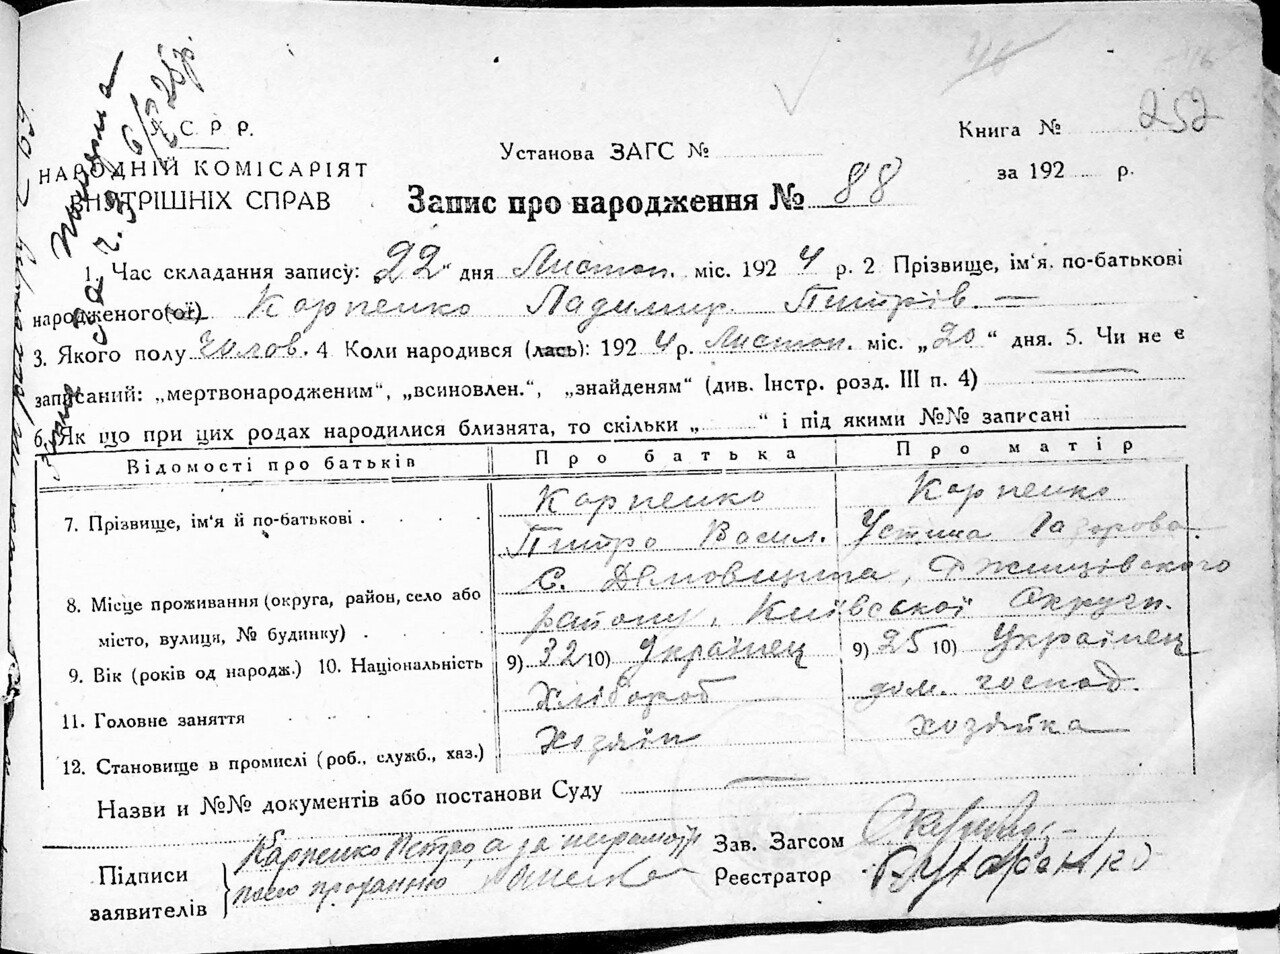 У. С. Р. Р.
НАРОДНІЙ КОМІСАРІЯТ
ВНУТРІШНІХ СПРАВ
Установа ЗАГС №
Книга № 252
за 192 р.
Запис про народження № 88
1. Час складання запису: 22 " дня Листоп. міс. 192 4 р. 2 Прізвище, ім'я, по-батькові
народженого(ої) Карпенко Ладимир Питрів. —
3. Якого полу Чолов. 4 Коли народився (лась): 192 4 р. Листоп. міс. „ 20 “ дня. 5. Чи не є
записаний: „мертвонародженим“, „всиновлен.“, „знайденям“ (див. Інстр. розд. III п. 4) —
6. Як що при цих родах народилися близнята, то скільки „ “ і під якими №№ записані
Відомості про батьків Про батька Про матір
7. Прізвище, ім'я й по-батькові . Карпенко Карпенко
Питро Васил. Устина
8. Місце проживання (округа, район, село або С. Демовщина, Ржищівского
місто, вулиця, № будинку) . району, Київської Округи.
9. Вік (років од народж.) 10. Національність 9) 32 10) Українец 9) 25 10) Українец
11. Головне заняття Хлібороб дом. господ.
12. Становище в промислі (роб., служб., хаз.) Хозяїн хозяйка
Назви и №№ документів або постанови Суду —
Підписи
заявителів
Карпенко Петро, а за
його проханню
Зав. Загсом
Реєстратор